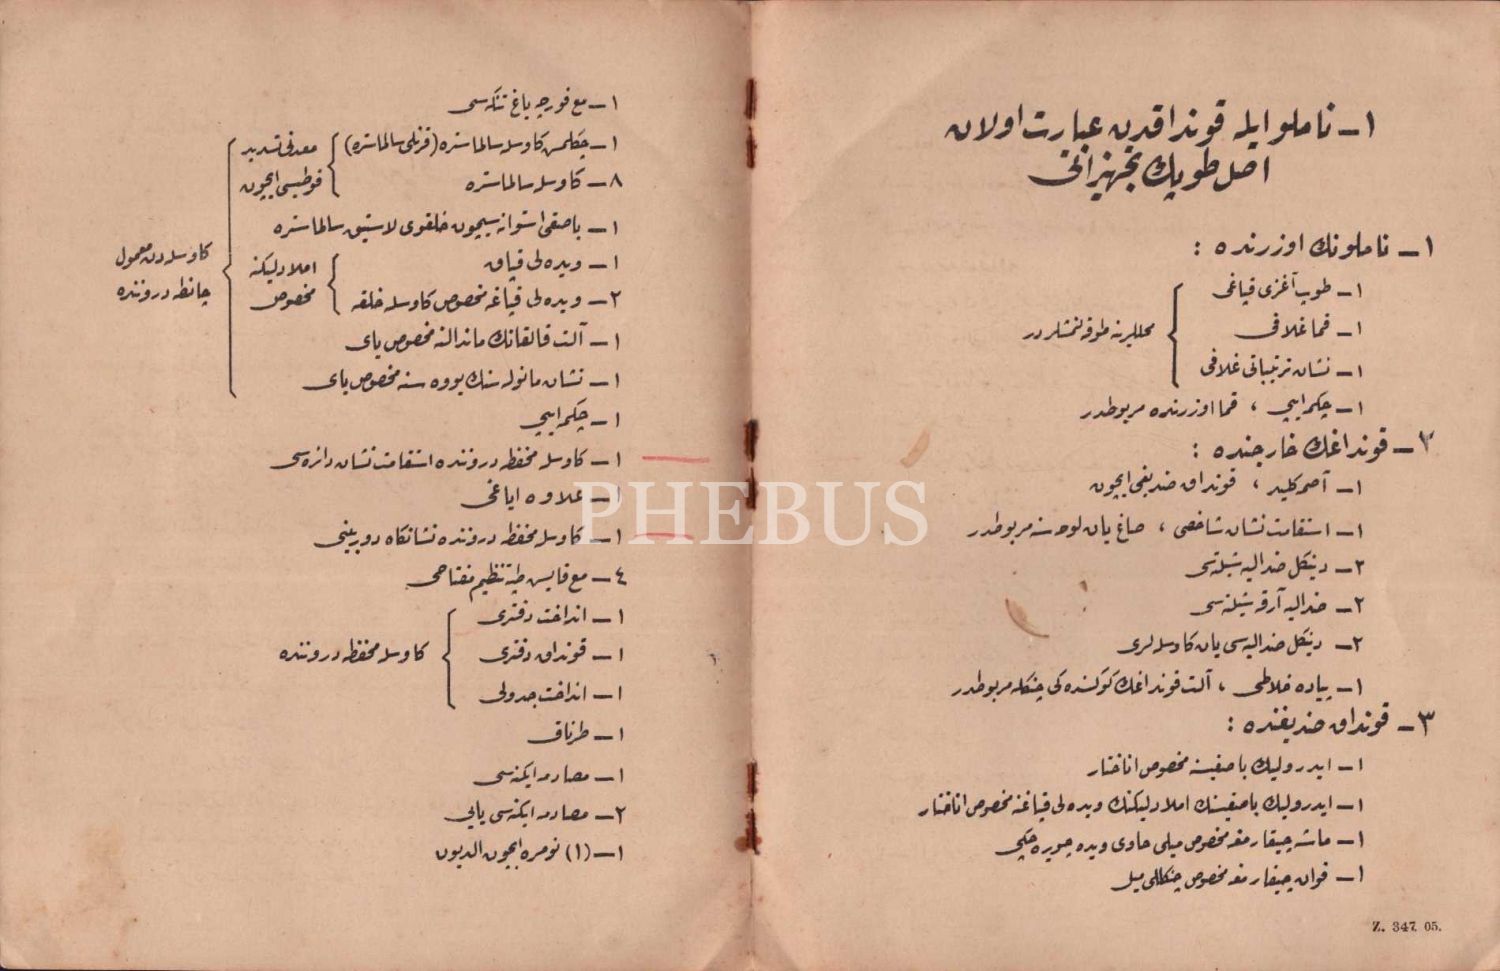 ١ـ ناملو ايله قونداقدن عبارت اولان
اصل طوپك تجهيزاتى
١ـ ناملونك اوزرنده :
١ـ طوپ آغزى قپاغى
١ـ قما غلافى
١ـ نشان ترتيباتى غلافى
محللرينه طوقه لنمشلردر
١ـ چكم ايپى ، قما اوزرنده مربوطدر
٢ـ قونداغك خارجنده :
١ـ آصمه كليد ، قونداق صنديغى ايچون
١ـ استقامت نشان شاخصى ، صاغ يان لوحه سنه مربوطدر
٢ـ دينكل صنداليه شيلته سى
٢ـ صنداليه آرقه شيلته سى
٢ـ دينكل صنداليه سى يان كاوسله لرى
١ـ پياده خلاطى ، آلت قونداغك كوكسنده كى چنكله مربوطدر
٣ـ قونداق صنديغنده :
١ـ ايدروليك باصقيسنه مخصوص اناختار
١ـ ايدروليك باصقيسنك املا دليكنك ويده لى قپاغنه مخصوص اناختار
١ـ ماشه چيقارمغه مخصوص ميلى حاوى ويده چويره جكى
١ـ قوان چيقارمغه مخصوص چنكللى ميل
Z. 347. 05.
١ـ مع فورچه ياغ تنكه سى
١ـ چكلمش كاوسله سالماستره (قزنلى سالماستره)
٨ـ كاوسله سالماستره
معدنى تسديد
قوطيسى ايچون
١ـ باصقى استوانه سيچون خلقوى لاستيق سالماستره
١ـ ويده لى قپاق
٢ـ ويده لى قپاغه مخصوص كاوسله خلقه
املا دليكنه
مخصوص
١ـ آلت قالقانك ماندالنه مخصوص ياى
١ـ نشان مانوله سنك يووه سنه مخصوص ياى
كاوسله دن معمول
چانطه دروننده
١ـ چكم ايپى
١ـ كاوسله محفظه دروننده استقامت نشان دائره سى
١ـ علاوه اياغى
١ـ كاوسله محفظه دروننده نشانكاه دوربينى
٤ـ مع قايس طپه تنظيم مفتاحى
١ـ انداخت دفترى
١ـ قونداق دفترى
١ـ انداخت جدولى
كاوسله محفظه دروننده
١ـ طرناق
١ـ مصادمه ايكنه سى
٢ـ مصادمه ايكنه سى يايى
١ـ (١) نومره ايچون الديون
PHEBUS